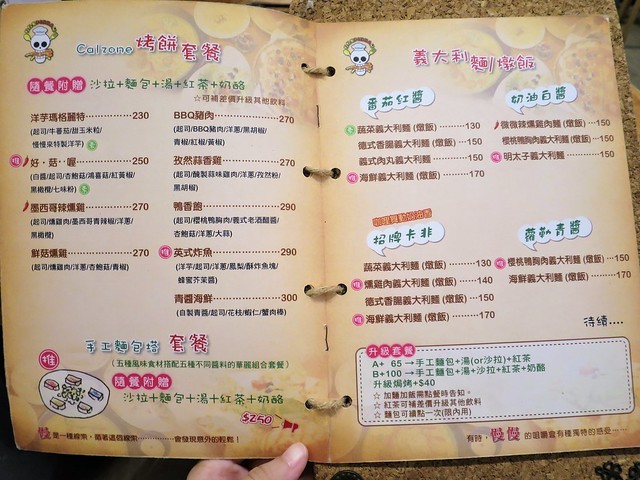 Calzone 烤餅 套餐
隨餐附贈 沙拉+麵包+湯+紅茶+奶酪
☆可補差價升級其他飲料
洋芋瑪格麗特 230
(起司/牛番茄/甜玉米粒/
慢慢來特製洋芋)
推 好‧菇‧喔 250
(白醬/起司/杏鮑菇/鴻喜菇/紅黃椒/
黑橄欖/七味粉)
墨西哥辣燻雞 270
(起司/燻雞肉/墨西哥青辣椒/洋蔥/
黑橄欖)
鮮菇燻雞 270
(起司/燻雞肉/洋蔥/杏鮑菇/青椒)
BBQ豬肉 270
(起司/BBQ豬肉/洋蔥/黑胡椒/
青椒/紅椒/黃椒)
孜然蒜香雞 270
(起司/醃製蒜味雞肉/洋蔥/孜然粉/
黑胡椒)
鴨香飽 290
(起司/櫻桃鴨胸肉/義式老酒醋醬/
杏鮑菇/洋蔥/大蒜)
推 英式炸魚 290
(洋芋/起司/洋蔥/鳳梨/酥炸魚塊/
蜂蜜芥茉醬)
青醬海鮮 300
(自製青醬/起司/花枝/蝦仁/蟹肉棒)
手工麵包塔 套餐
推 (五種風味食材搭配五種不同醬料的華麗組合套餐)
隨餐附贈
沙拉+麵包+湯+紅茶+奶酪
$250
慢是一種線索，循著這個線索…………會發現意外的輕鬆！
義大利麵/燉飯
番茄紅醬
蔬菜義大利麵 (燉飯) 130
德式香腸義大利麵 (燉飯) 150
義式肉丸義大利麵 (燉飯) 150
推 海鮮義大利麵 (燉飯) 170
奶油白醬
微微辣燻雞肉麵 (燉飯) 150
櫻桃鴨胸肉義大利麵 (燉飯) 150
推 明太子義大利麵 150
招牌卡非
蔬菜義大利麵 (燉飯) 130
推 燻雞肉義大利麵 (燉飯) 140
德式香腸義大利麵 (燉飯) 150
推 海鮮義大利麵 (燉飯) 170
蘿勒青醬
推 櫻桃鴨胸肉義大利麵 (燉飯) 150
海鮮義大利麵 (燉飯) 170
待續....
升級套餐
A+ 65→手工麵包+湯(or沙拉)+紅茶
B+100→手工麵包+湯+沙拉+紅茶+奶酪
升級焗烤+$40
☆ 加麵加飯需點餐時告知。
☆ 紅茶可補差價升級其他飲料
☆ 麵包可續點一次(限內用)
有時，慢慢的咀嚼會有種獨特的感受……